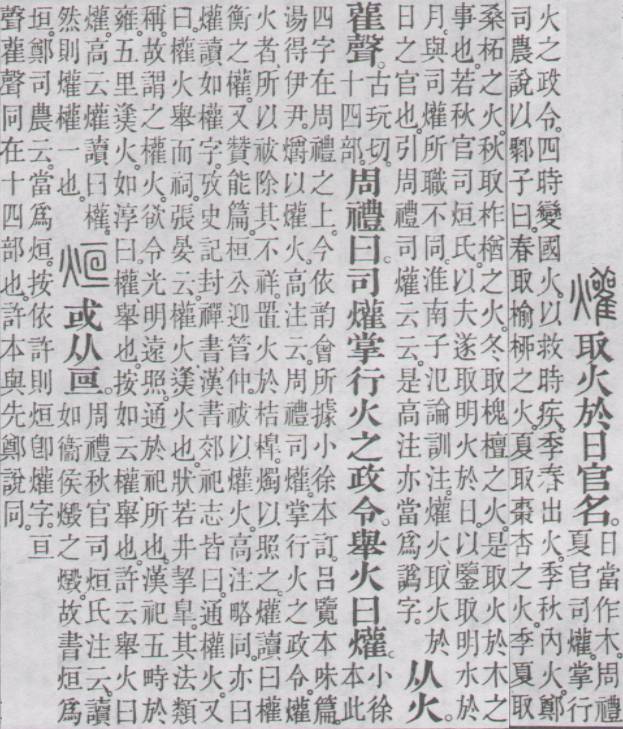 爟 取火於日官名。日當作木。周禮
夏官司爟。掌行
火之政令。四時變國火。以救時疾。季春出火。季秋內火。鄭
司農說以鄹子曰。春取榆柳之火。夏取棗杏之火。季夏取
桑柘之火。秋取柞楢之火。冬取槐檀之火。是取火於木之
事也。若秋官司烜氏。以夫遂取明火於日。以鑒取明水於
月。與司爟所職不同。淮南子氾論訓注。爟火。取火於
日之官也。引周禮司爟云云。是高注亦當爲譌字。
从火
雚聲。古玩切。十四部。周禮曰。司爟掌行火之政令。舉火曰爟。小徐本此
四字在周禮之上。今依韵會所據小徐本訂。呂覽本味篇。
湯得伊尹。爝以爟火。高注云。周禮司爟掌行火之政令。爟
火者。所以祓除其不祥。置火於桔槔。燭以照之。爟讀曰權
衡之權。又贊能篇。桓公迎管仲。祓以爟火。高注略同。亦曰
爟讀如權字。攷史記封禪書。漢書郊祀志皆曰。通權火。又
曰。權火舉而祠。張晏云。權火㷭火也。狀若井挈皐。其法類
稱。故謂之權火。欲令光明遠照。通於祀所也。漢祀五畤於
雍。五里㷭火。如淳曰。權、舉也。按如云權舉也。許云舉火曰
爟。高云爟讀曰權。
然則爟權一也。
烜 或从亘。周禮秋官司烜氏注云。讀
如衞侯燬之燬。故書烜爲
垣。鄭司農云當爲烜。按依許則烜卽爟字。亘
聲雚聲同在十四部也。許本與先鄭說同。